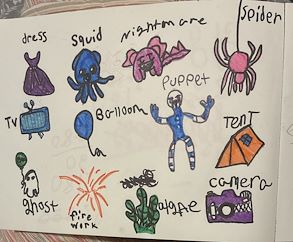 dress
squid
nightmare
spider
TV
Balloom
Puppet
TENT
ghost
fire
work
algae
camera